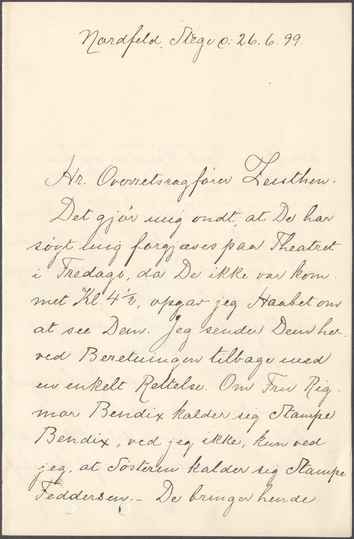 Nordfeld, Stege d: 26. 6. 99.
Hr. Overretssagfører Zeuthen.
Det gjør mig ondt, at De har
søgt mig forgjæves paa Theatret
i Fredags, da De ikke var kom-
met Kl 4½, opgav jeg Haabet om
at see Dem. Jeg sender Dem her-
ved Beretningen tilbage med
en enkelt Rettelse. Om Fru Rig-
mor Bendix kalder sig Stampe
Bendix, ved jeg ikke, kun ved
jeg, at Søsteren kalder sig Stampe
Feddersen. – De bringer hende